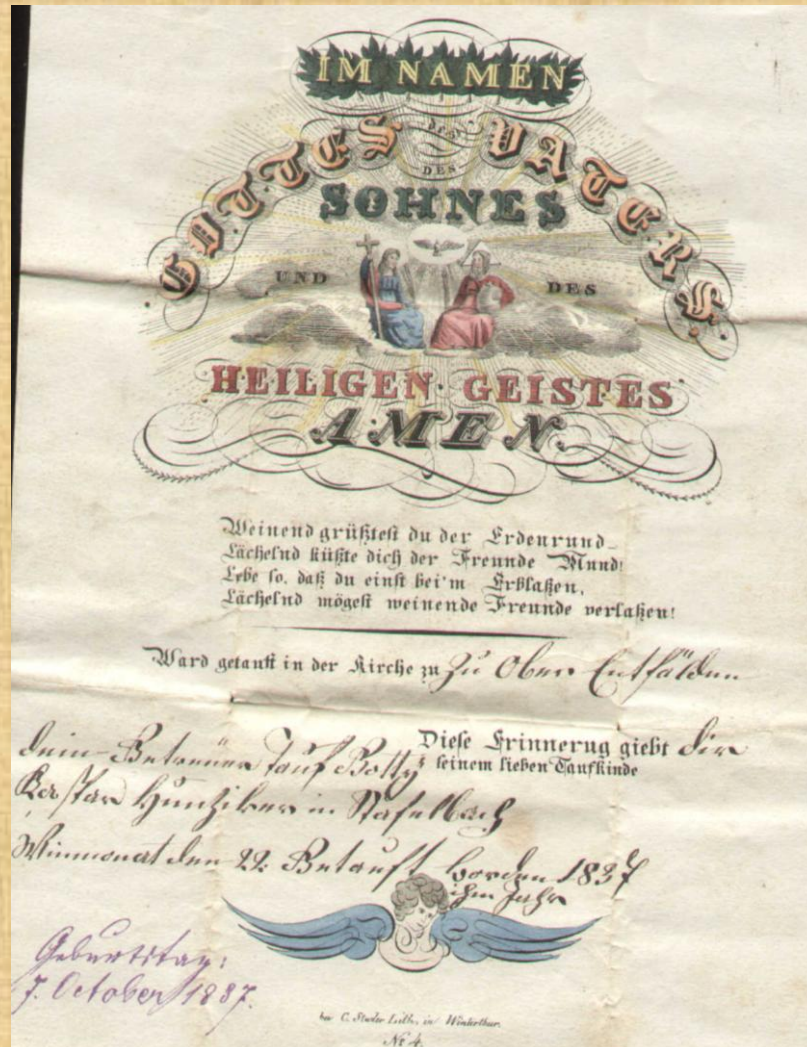 IM NAMEN
GOTTES des VATERS.
DES
SOHNES
UND DES
HEILIGEN GEISTES
AMEN.
Weinend grüßtest du der Erdenrund
Lächelnd küßte dich der Freunde Mund!
Lebe so, daß du einst bei'm Erblaßen,
Lächelnd mögest weinende Freunde verlaßen!
Ward getauft in der Kirche zu Zu Ober Entfälden
Diese Erinnerug giebt dir
dein Getreüer Tauf Götty seinem lieben Taufkinde
Kaspar Hunziker in Stafelbach
Winmonat den 22. Getauft worden 1837
ihm Jahr
Geburtstag:
7. October 1837.
bei C. Studer Lith. in Winterthur.
No 4.